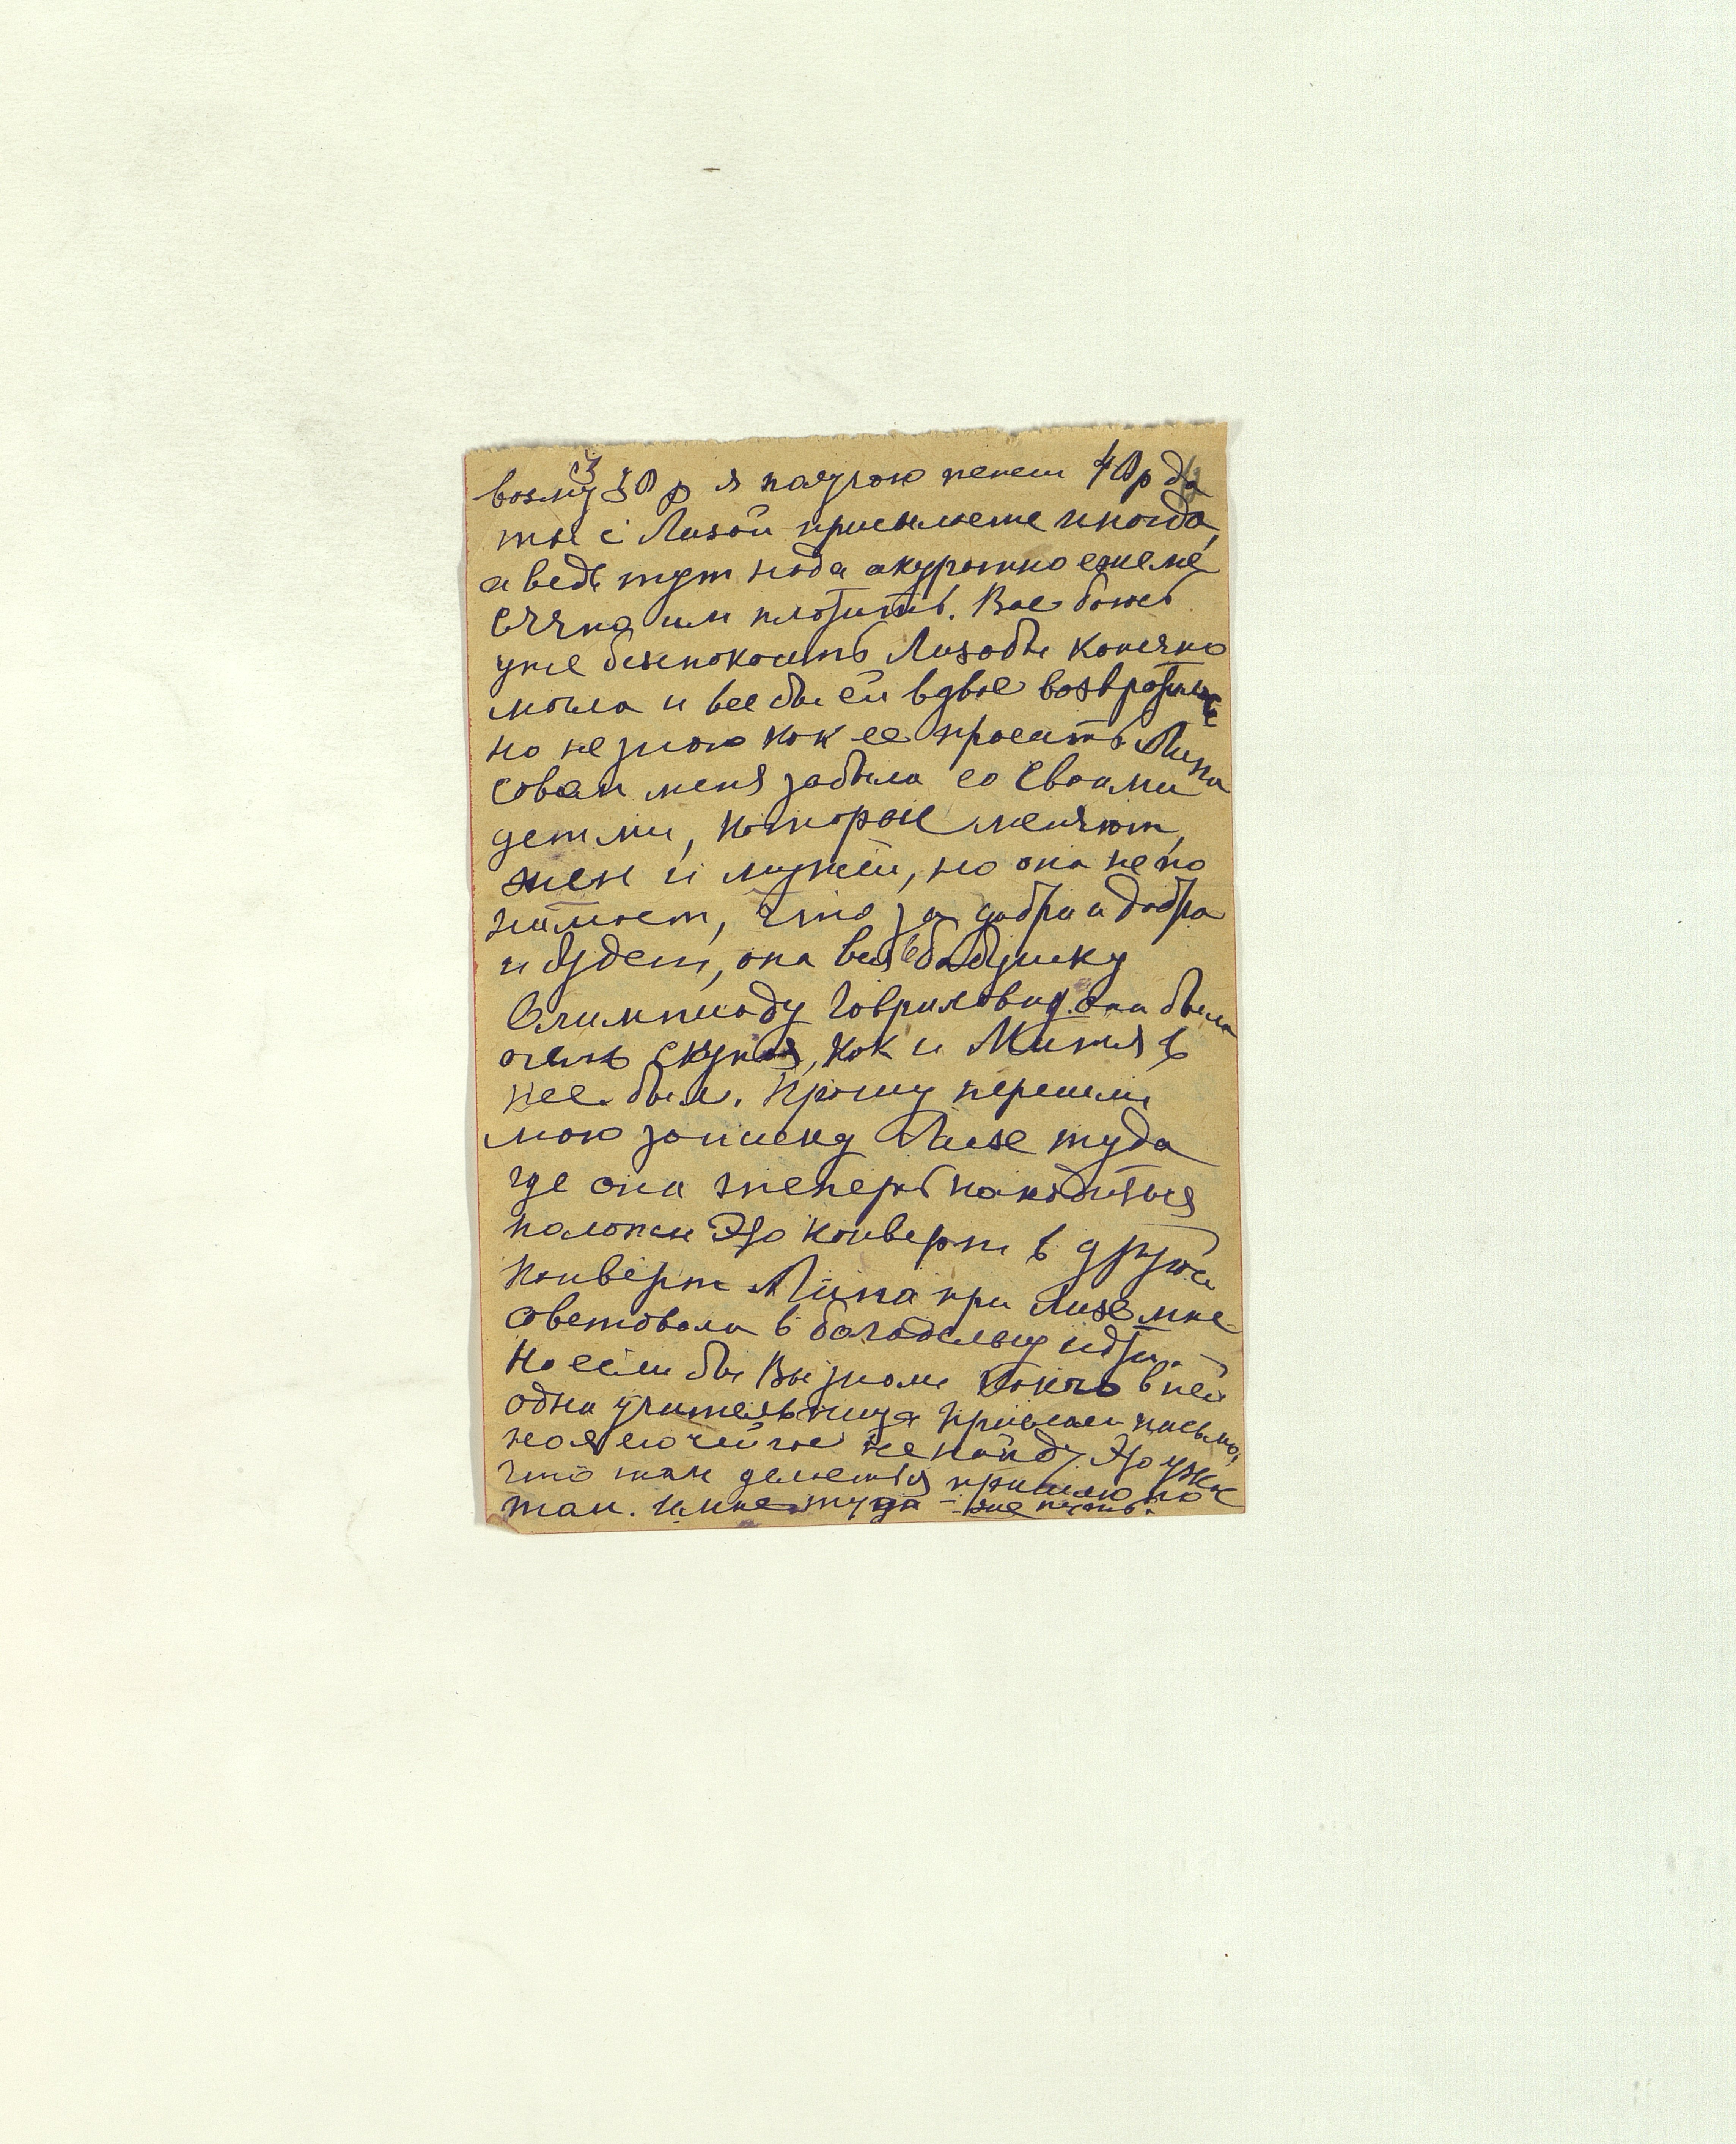 возму 30 р я получаю пенси 40р да
ты с Лизой присылаете иногда,
а ведь тут нада акуратно ежеме
сячно им платить. Вас боюсь
уже беспокоить Лиза бы конечно
могла и все бы ей вдвое возвратить
но не знаю как ее просить Липа
совсем меня забыла со своими
детми, которые меняют,
жен и мужей, но она не по
нимает, что за добро и добро
и будет, она вся в бабушку
Олимпиаду Гавриловну она была
очень скупая, как и Митя в
нее был. Прошу перешли
мою записку Лизе туда
где она теперь находиться
положи Это конверт в другой
конверт Липа при Лизе мне
советовала в богадельну идти.
Но если бы Вы знали как в ней
одна учительница прислала письмо,
но я его сейчас не найду Это ужас
что там делается пришлю по
том. и мне туда - же путь.